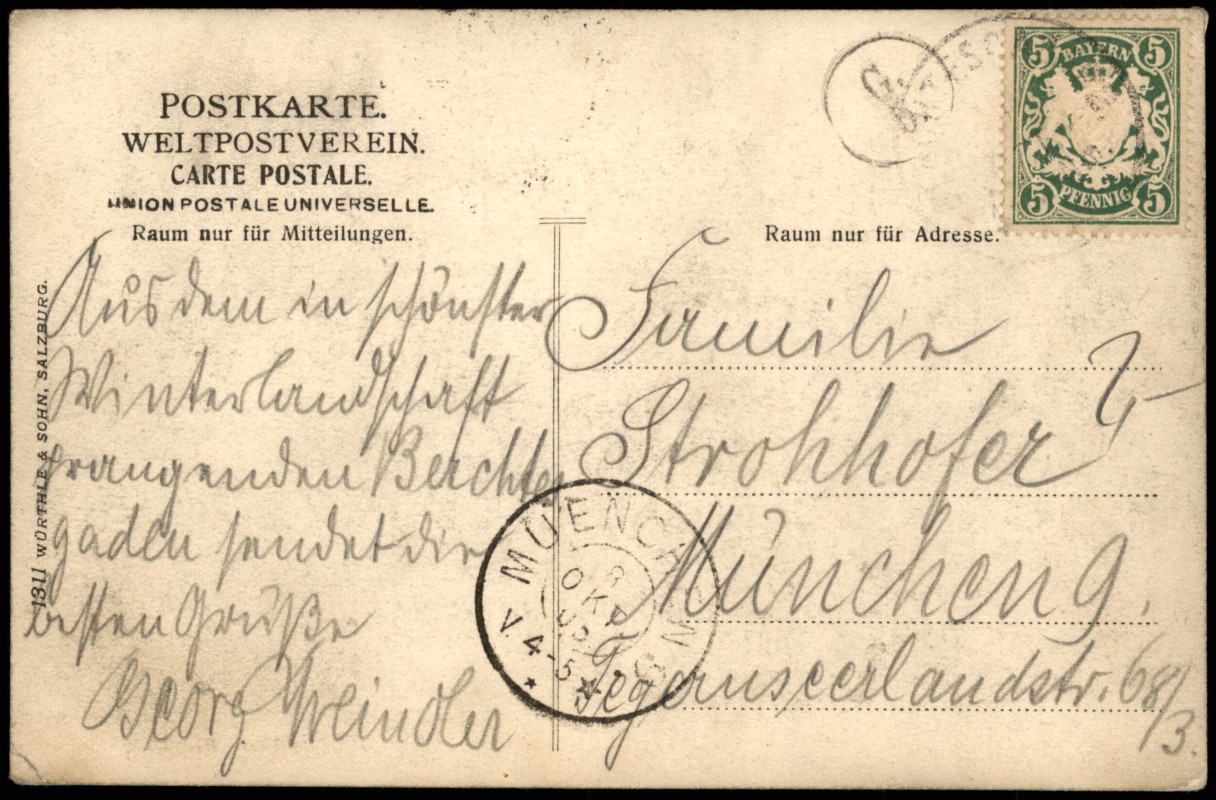 POSTKARTE.
WELTPOSTVEREIN.
CARTE POSTALE.
UNION POSTALE UNIVERSELLE.
Raum nur für Mitteilungen.
Raum nur für Adresse.
5 BAYERN 5
5 PFENNIG 5
Aus dem in schönster
Winterlandschaft
prangenden Berchtes
gaden sendet die
besten Grüße
Georg
Familie
Strohhofer
München 9.
Tegernseerlandstr. 68/3.
MUENCHEN
OKT
V. 4-5
1311 WÜRTHLE & SOHN, SALZBURG.